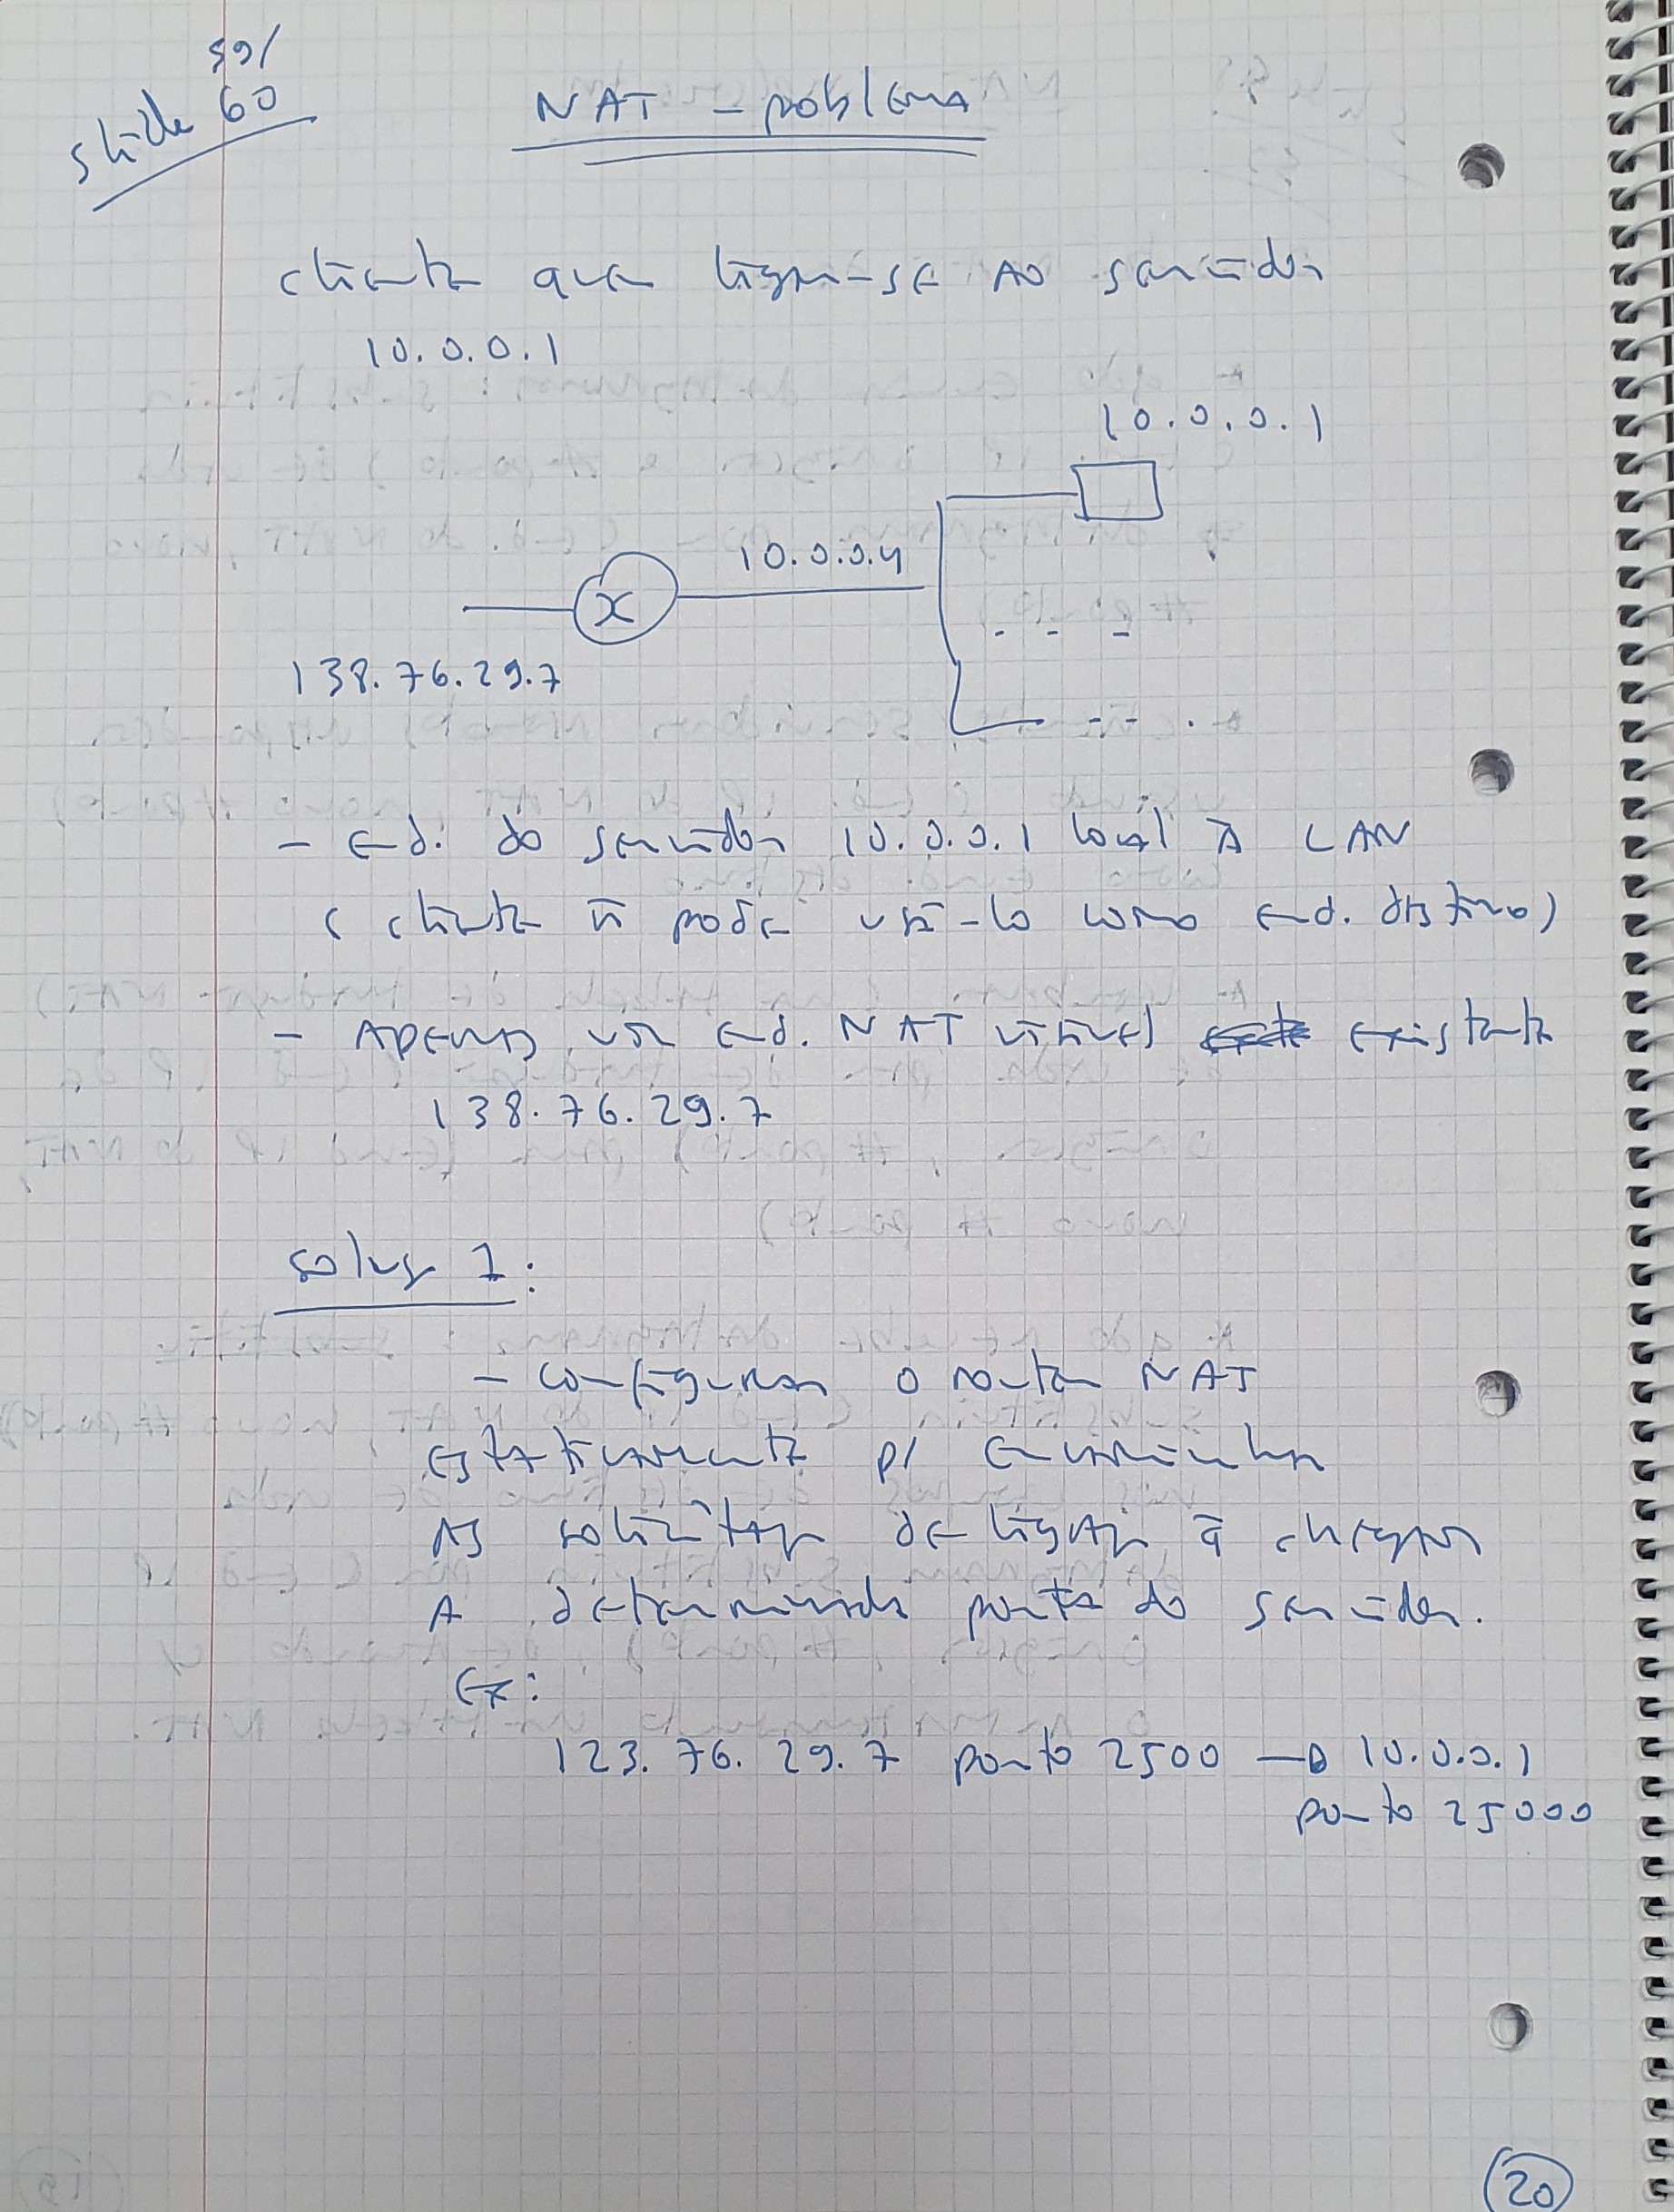 59/
slide 60
NAT - problema
cliente quer ligar-se ao servidor
10.0.0.1
10.0.0.1
10.0.0.4
138.76.29.7
- End. do servidor 10.0.0.1 local à LAN
( cliente ñ pode usá-lo como end. destino)
- Apenas um end. NAT visível existente
138.76.29.7
solução 1:
- configurar o router NAT
estaticamente p/ encaminhar
as solicitações de ligação a chegar
a determinada porta do servidor.
Ex:
123.76.29.7 porto 2500 → 10.0.0.1
porto 25000
20